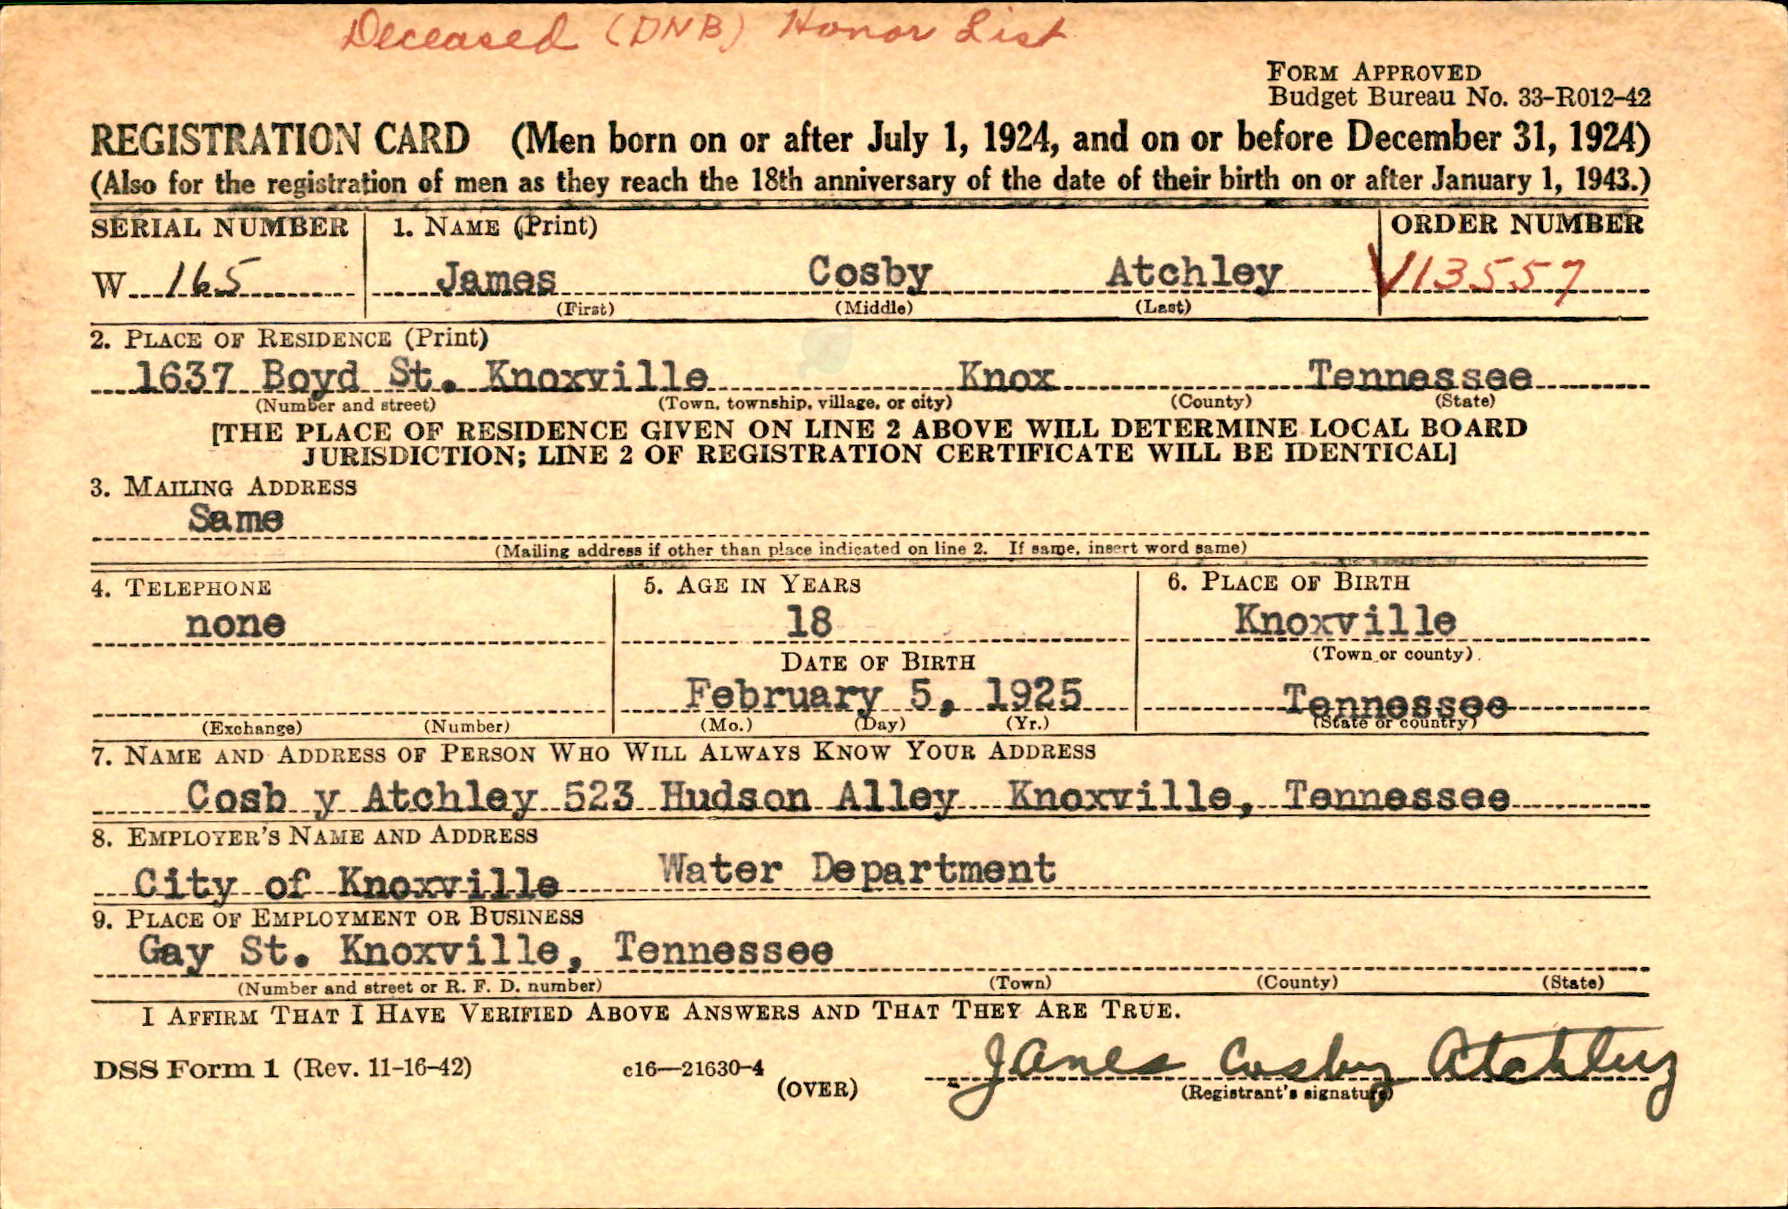 Deceased (DNB) Honor List
FORM APPROVED
Budget Bureau No. 33-R012-42
REGISTRATION CARD (Men born on or after July 1, 1924, and on or before December 31, 1924)
(Also for the registration of men as they reach the 18th anniversary of the date of their birth on or after January 1, 1943.)
SERIAL NUMBER 1. NAME (Print) ORDER NUMBER
W 165 James Cosby Atchley V13557
(First) (Middle) (Last)
2. PLACE OF RESIDENCE (Print)
1637 Boyd St. Knoxville Knox Tennessee
(Number and street) (Town, township, village, or city) (County) (State)
[THE PLACE OF RESIDENCE GIVEN ON LINE 2 ABOVE WILL DETERMINE LOCAL BOARD
JURISDICTION; LINE 2 OF REGISTRATION CERTIFICATE WILL BE IDENTICAL]
3. MAILING ADDRESS
Same
(Mailing address if other than place indicated on line 2. If same, insert word same)
4. TELEPHONE 5. AGE IN YEARS 6. PLACE OF BIRTH
none 18 Knoxville
DATE OF BIRTH (Town or county)
February 5, 1925 Tennessee
(Exchange) (Number) (Mo.) (Day) (Yr.) (State or country)
7. NAME AND ADDRESS OF PERSON WHO WILL ALWAYS KNOW YOUR ADDRESS
Cosb y Atchley 523 Hudson Alley Knoxville, Tennessee
8. EMPLOYER'S NAME AND ADDRESS
City of Knoxville Water Department
9. PLACE OF EMPLOYMENT OR BUSINESS
Gay St. Knoxville, Tennessee
(Number and street or R. F. D. number) (Town) (County) (State)
I AFFIRM THAT I HAVE VERIFIED ABOVE ANSWERS AND THAT THEY ARE TRUE.
DSS Form 1 (Rev. 11-16-42) c16—21630-4 James Cosby Atchley
(OVER) (Registrant's signature)